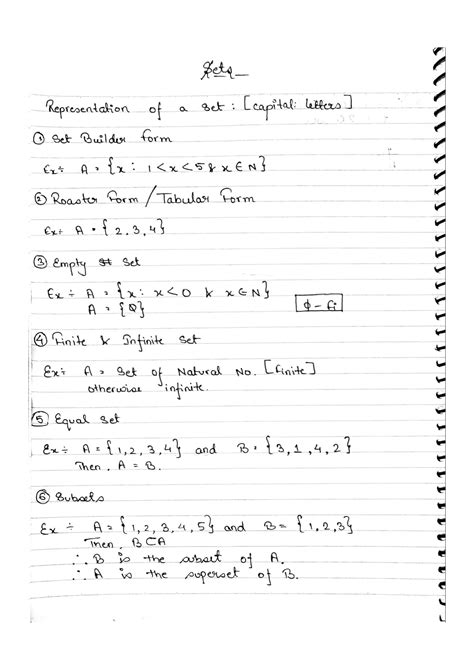 Sets
Representation of a set : [capital letters]
① Set Builder form
Ex÷ A = {x : 1 < x < 5 & x ∈ N}
② Roaster Form / Tabular Form
Ex÷ A = {2, 3, 4}
③ Empty Set
Ex ÷ A = {x : x < 0 & x ∈ N}
A = {Ø}
ϕ - fi
④ Finite & Infinite Set
Ex÷ A = Set of Natural No. [finite]
otherwise infinite.
⑤ Equal Set
Ex÷ A = {1, 2, 3, 4} and B = {3, 1, 4, 2}
Then, A = B.
⑥ Subsets
Ex ÷ A = {1, 2, 3, 4, 5} and B = {1, 2, 3}
Then, B ⊂ A
∴ B is the subset of A.
∴ A is the superset of B.